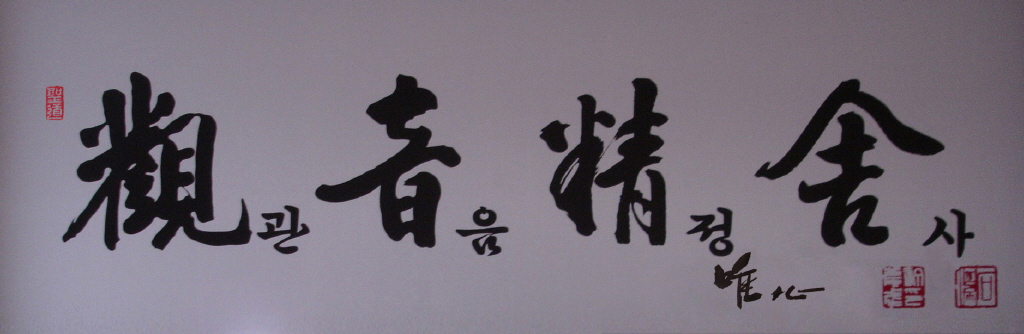 觀관 音음 精정 舍사
唯心